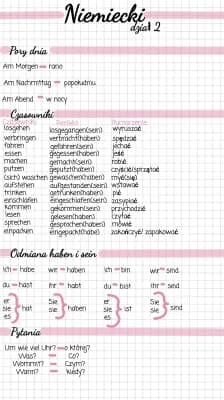 Niemiecki
dział 2
Pory dnia
Am Morgen – rano
Am Nachmittag – popołudniu
Am Abend – w nocy
Czasowniki
Czasownik Perfekt Tłumaczenie
losgehen losgegangen(sein) wyruszać
verbringen verbracht(haben) spędzać
fahren gefahren(sein) jechać
essen gegessen(haben) jeść
machen gemacht(sein) robić
putzen geputzt(haben) czyścić/sprzątać
(sich) waschen gewaschen(haben) myć(się)
aufstehen aufgestanden(sein) wstawać
trinken getrunken(haben) pić
einschlafen eingeschlafen(sein) zasypiać
kommen gekommen(sein) przychodzić
lesen gelesen(haben) czytać
sprechen gesprochen(haben) mówić
einpacken eingepackt(haben) zakończyć/ zapakować
Odmiana haben i sein
ich – habe wir – haben ich – bin wir – sind
du – hast ihr – habt du – bist ihr – sind
er sie es } hat Sie sie } haben er sie es } ist Sie sie } sind
Pytania
Um wie viel Uhr? – o której?
Was? – Co?
Wommit? – Czym?
Wann? – Kiedy?